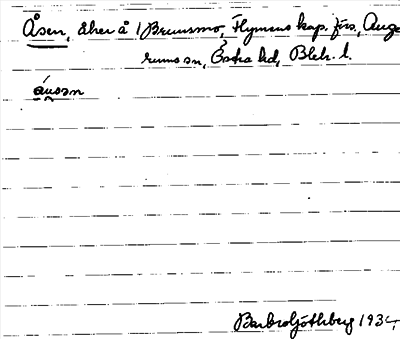 Åsen, åker å 1 Brunsmo, Flymens kap. frs, Auge
rums sn, Östra hd, Blek. l.
áusən
Barbro Göthberg 1934,